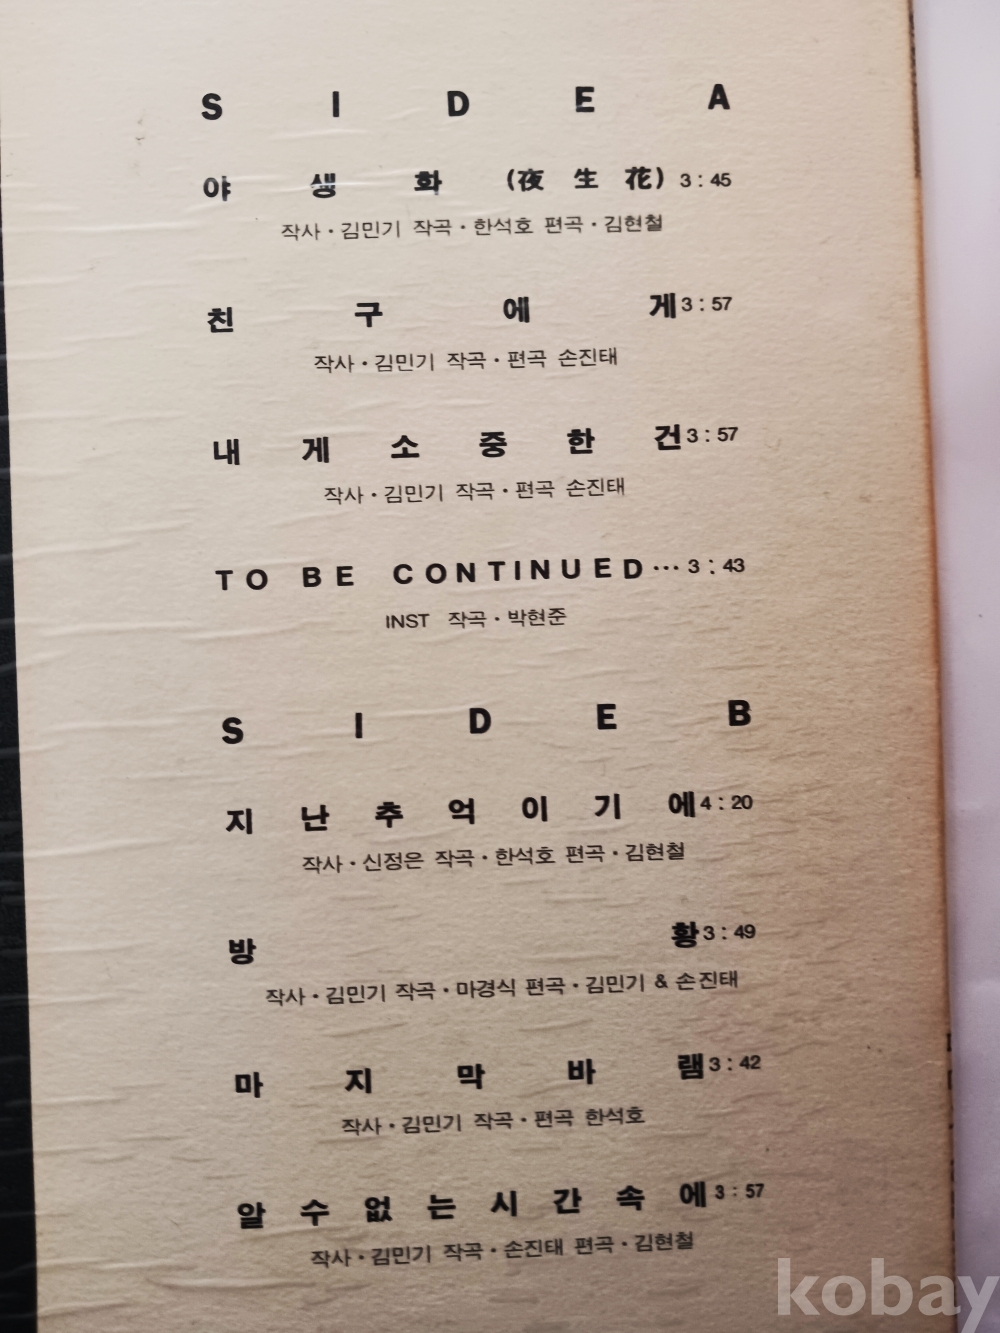 SIDE A
야생화 (夜生花) 3:45
작사·김민기 작곡·한석호 편곡·김현철
친구에게 3:57
작사·김민기 작곡·편곡 손진태
내게소중한건 3:57
작사·김민기 작곡·편곡 손진태
TO BE CONTINUED… 3:43
INST 작곡·박현준
SIDE B
지난추억이기에 4:20
작사·신정은 작곡·한석호 편곡·김현철
방황 3:49
작사·김민기 작곡·마경식 편곡·김민기 & 손진태
마지막바램 3:42
작사·김민기 작곡·편곡 한석호
알수없는시간속에 3:57
작사·김민기 작곡·손진태 편곡·김현철
kobay